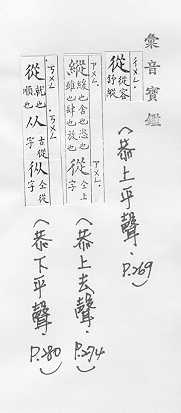 彙音寶鑑
從 從容
舒緩
(恭上平聲. P.269)
縱 緩也舍也恣也
雖也肆也放也
從 仝上
字
(恭上去聲. P.274)
從 也
順也
从 古從
字
従 仝從
字
(恭下平聲. P.280)